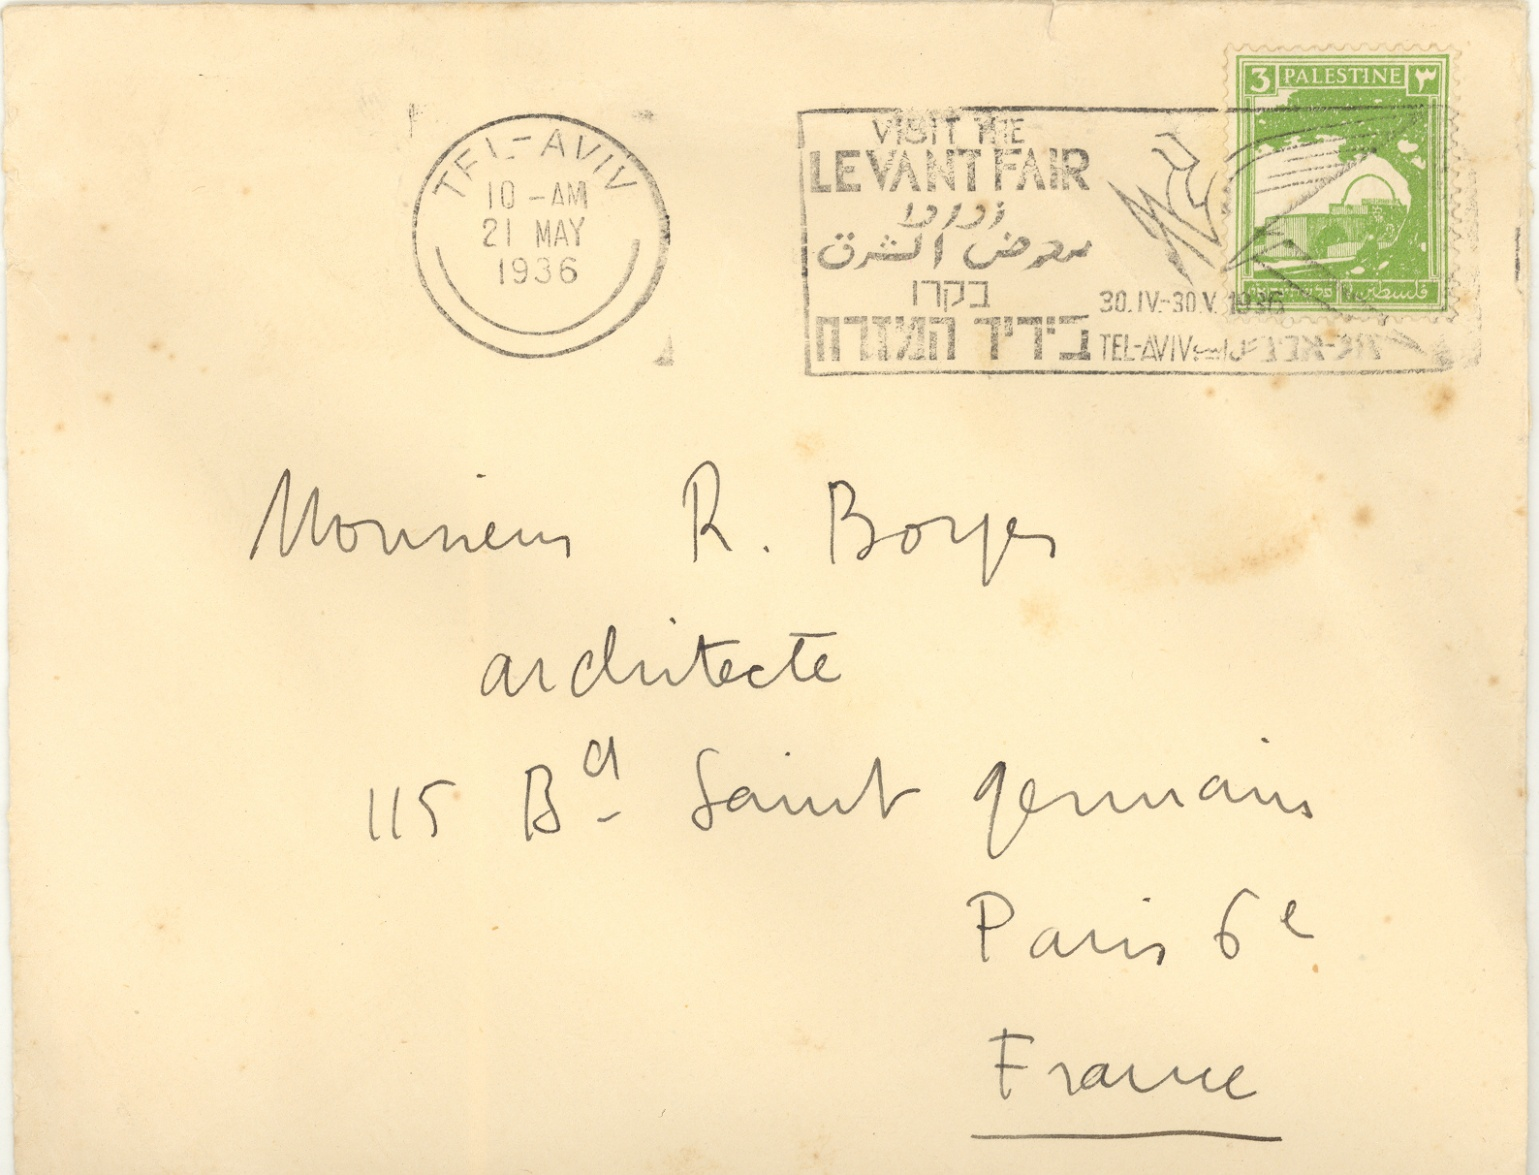 TEL-AVIV
10-AM
21 MAY
1936
VISIT THE
LEVANT FAIR
زوروا
معرض الشرق
בקרו
ביריד המזרח
30.IV-30.V.1936
TEL-AVIV תל-אביב
3 PALESTINE ٣
فلسطين
Monsieur R. Borges
architecte
115 Bd Saint germain
Paris 6e
France